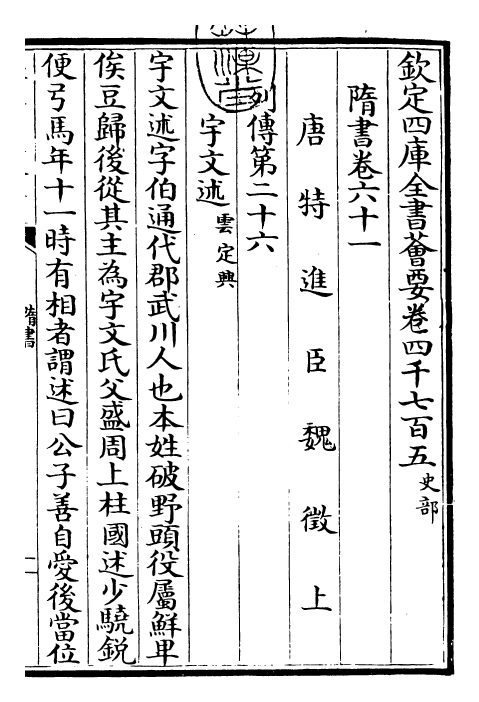 欽定四庫全書薈要卷四千七百五 史部
隋書卷六十一
唐特進臣魏徵上
列傳第二十六
宇文述 雲定興
宇文述字伯通代郡武川人也本姓破野頭役屬鮮卑
俟豆歸後從其主為宇文氏父盛周上柱國述少驍銳
便弓馬年十一時有相者謂述曰公子善自愛後當位
隋書